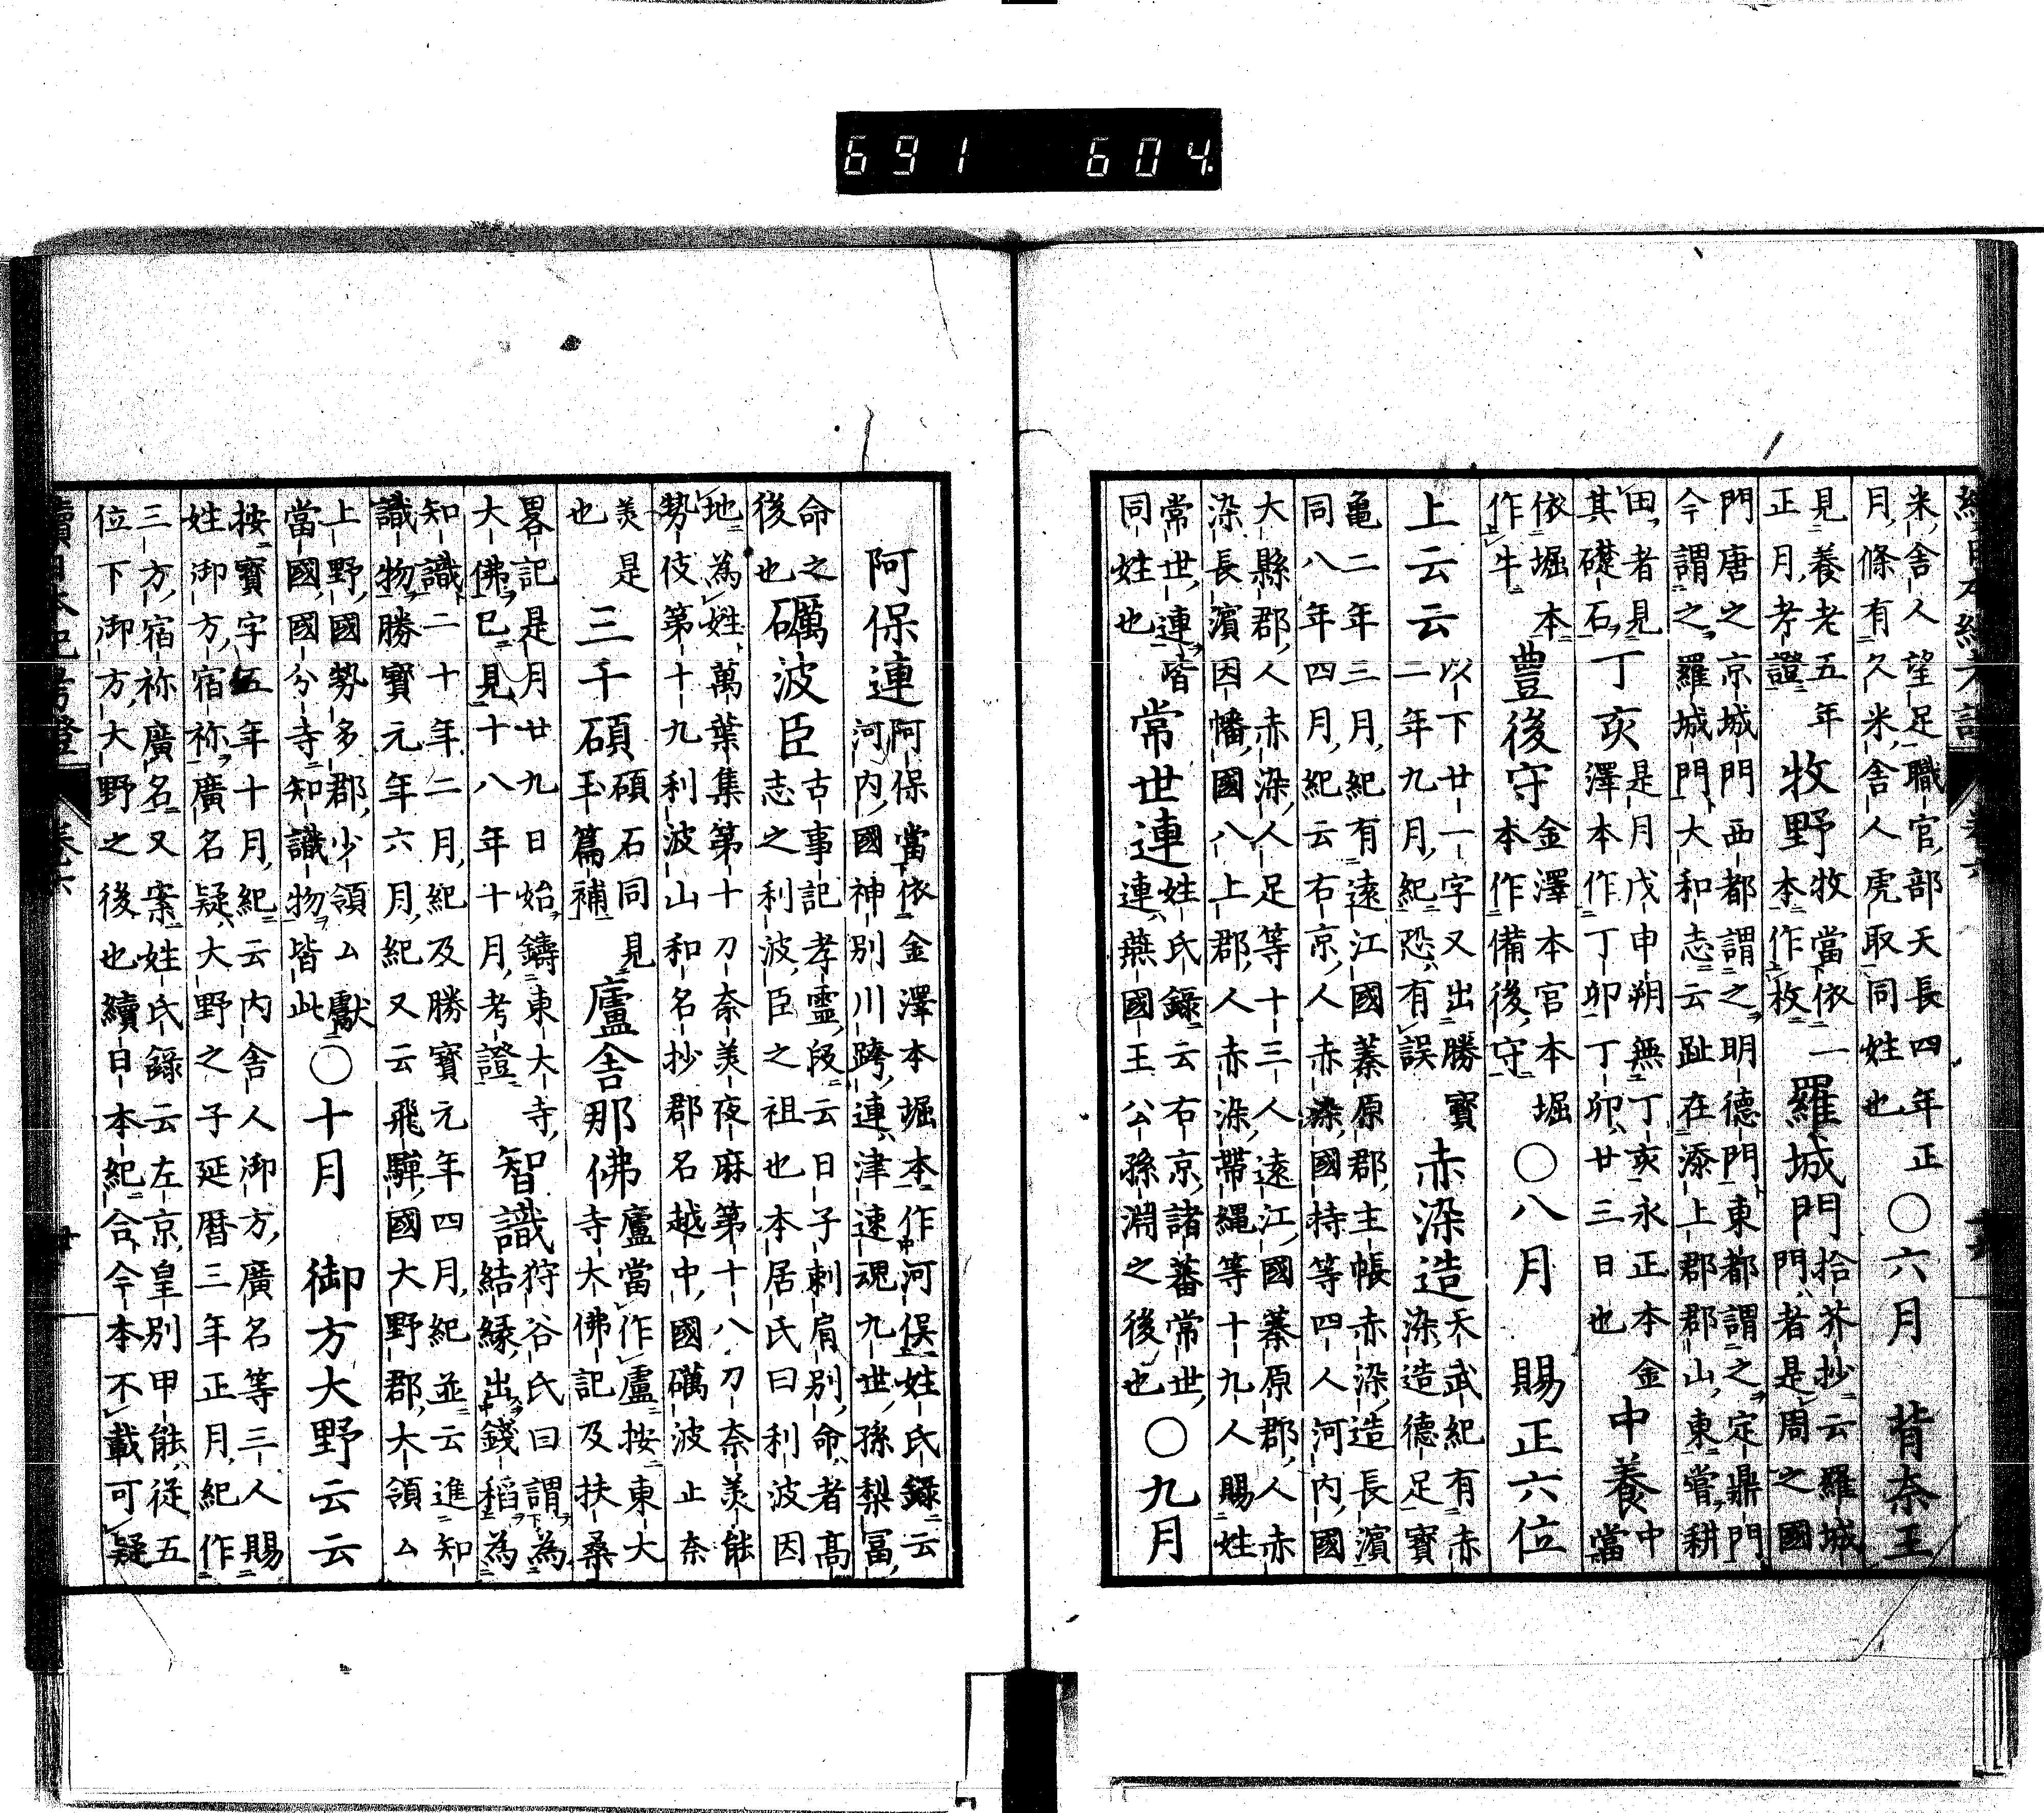 691 604
米舍人望足職官部天長四年正
月條有久米舍人虎取同姓也
〇六月　背奈王
見養老五年
正月考證
牧野
牧當依一
本作枚
羅城門
拾芥抄云羅城
門者是周之國
門唐之京城門西都謂之明德門東都謂之定鼎門
今謂之羅城門大和志云趾在添上郡郡山東嘗耕
田者見
其礎石
丁亥
是月戊申朔無丁亥永正本金
澤本作丁卯丁卯廿三日也
中養
中當
依堀本
作牛
豊後守
金澤本官本堀
本作備後守
〇八月　賜正六位
上云云
以下廿一字又出勝寶
二年九月紀恐有誤
赤染造
天武紀有赤
染造德足寶
龜二年三月紀有遠江國蓁原郡主帳赤染造長濵
同八年四月紀云右京人赤染國持等四人河内國
大縣郡人赤染人足等十三人遠江國蓁原郡人赤
染長濵因幡國八上郡人赤染帶縄等十九人賜姓
常世連皆
同姓也
常世連
姓氏錄云右京諸蕃常世
連燕國王公孫淵之後也
〇九月
阿保連
阿保當依金澤本堀本作河俣姓氏錄云
河内國神別川跨連津速魂九世孫梨冨
命之
後也
礪波臣
古事記孝霊段云日子刺肩別命者高
志之利波臣之祖也本居氏曰利波因
地為姓萬葉集第十刀奈美夜麻第十八刀奈美能
勢伎第十九利波山和名抄郡名越中國礪波止奈
美是
也
三千碩
碩石同見
玉篇補
廬舍那佛
廬當作盧按東大
寺大佛記及扶桑
畧記是月廿九日始鑄東大寺
大佛巳見十八年十月考證
智識
狩谷氏曰謂為
結縁出錢稻為
知識二十年二月紀及勝寶元年四月紀並云進知
識物勝寶元年六月紀又云飛驒國大野郡大領ム
上野國勢多郡少領ム獻
當國國分寺知識物皆此
〇十月　御方大野云云
按寶字五年十月紀云内舍人御方廣名等三人賜
姓御方宿祢廣名疑大野之子延暦三年正月紀作
三方宿祢廣名又案姓氏錄云左京皇別甲能從五
位下御方大野之後也續日本紀合今本不載可疑